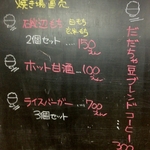 焼き場直売
2個セット 150
ホット甘酒 100
ライスバーガー 700
3個セット
だだちゃ豆ブレンドコーヒー
300